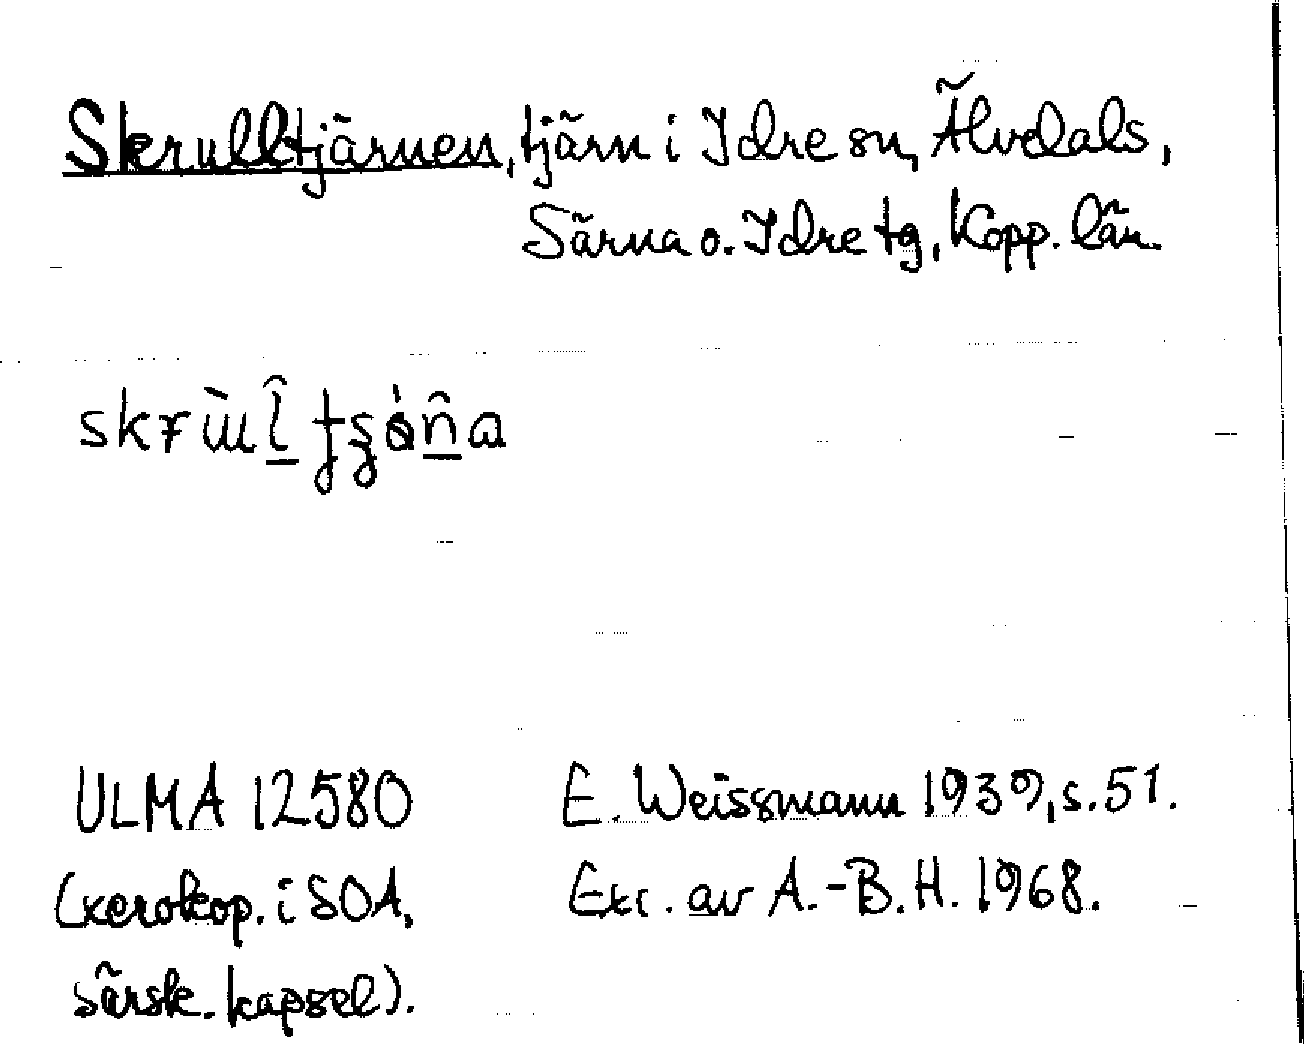 Skrulltjärnen, tjärn i Idre sn, Älvdals,
Särna o. Idre tg, Kopp. län.
ULMA 12580
(xerokop. i SOA,
särsk. kapsel).
E. Weissmann 1939, s. 51.
Exc. av A.-B. H. 1968.